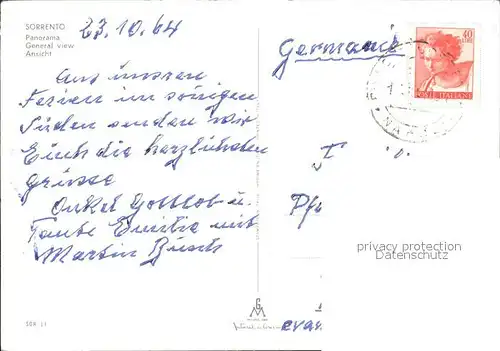 SORRENTO
Panorama
General view
Ansicht
23.10.64
Aus unseren
Ferien im sonnigen
Süden senden wir
Euch die herzlichsten
grüsse
Onkel Gottlob u.
Tante Emilie mit
Martin Busch
Germania
40
LIRE
POSTE ITALIANE
Pfa
privacy protection
Datenschutz
evan